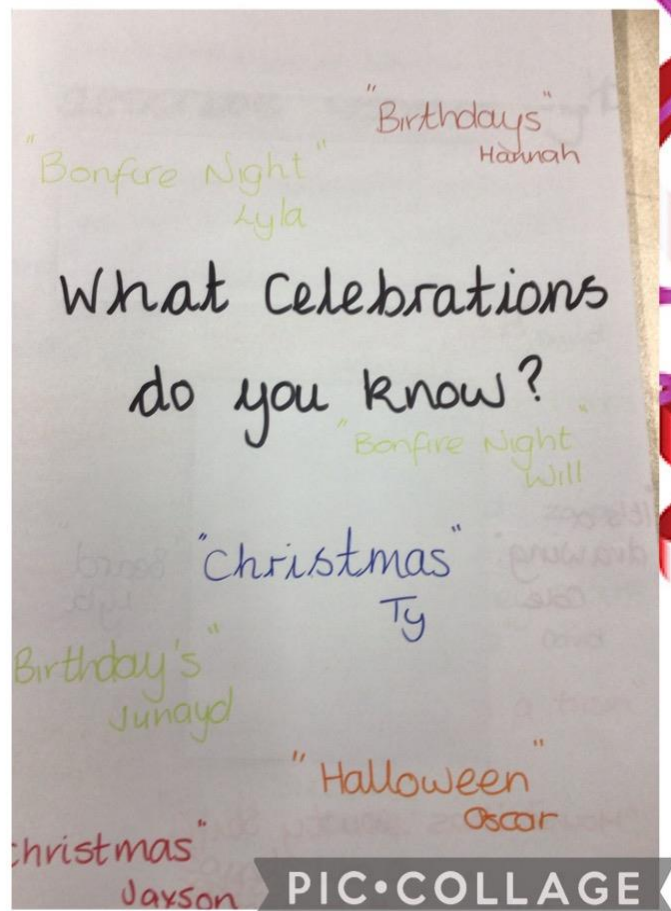 "Birthdays"
Hannah
"Bonfire Night"
Lyla
What Celebrations
do you know?
"Bonfire Night"
Will
"Christmas"
Ty
Birthday's"
Junayd
"Halloween"
Oscar
christmas"
Jayson
PIC•COLLAGE